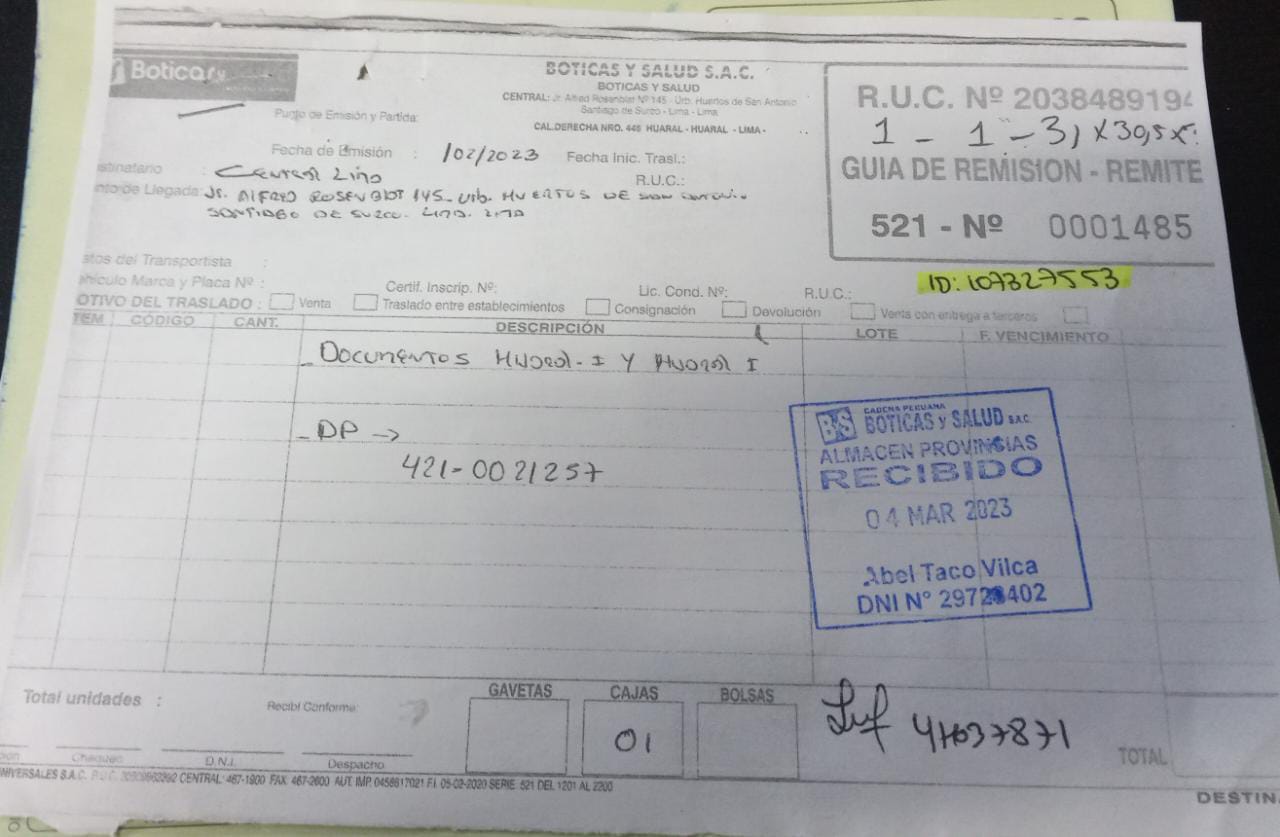 Boticas y
BOTICAS Y SALUD S.A.C.
BOTICAS Y SALUD
CENTRAL: Jr. Alfred Rosenblat Nº 145 - Urb. Huertos de San Antonio
Santiago de Surco - Lima - Lima
CAL.DERECHA NRO. 446 HUARAL - HUARAL - LIMA -
Punto de Emisión y Partida:
R.U.C. Nº 2038489194
1 - 1 - 3,1 x 30,5 x
GUIA DE REMISION - REMITE
521 - Nº 0001485
Fecha de Emisión : 1/02/2023 Fecha Inic. Trasl.:
stinatario : Central Lima R.U.C.:
nto de Llegada: Jr. ALFRED ROSENBLAT 145 - Urb. HUERTOS DE SAN ANTONIO
SANTIAGO DE SURCO. LIMA. LIMA
atos del Transportista :
ehículo Marca y Placa Nº : Certif. Inscrip. Nº: Lic. Cond. Nº: R.U.C.:
ID: 107327553
OTIVO DEL TRASLADO : Venta Traslado entre establecimientos Consignación Devolución Venta con entrega a terceros
TEM CÓDIGO CANT. DESCRIPCIÓN LOTE F. VENCIMIENTO
- DOCUMENTOS HUARAL - I Y HUARAL I
- DP →
421-0021257
CADENA PERUANA
BS BOTICAS y SALUD S.A.C.
ALMACEN PROVINCIAS
RECIBIDO
04 MAR 2023
Abel Taco Vilca
DNI N° 2972 402
Total unidades : Recibí Conforme: GAVETAS CAJAS BOLSAS
01
41037871
TOTAL
Chequeo D.N.I. Despacho
NIVERSALES S.A.C. R.U.C. CENTRAL: 467-1900 FAX. 467-2600 AUT. IMP. 0458617021 F.I. 05-02-2020 SERIE 521 DEL 1201 AL 2200
DESTINA